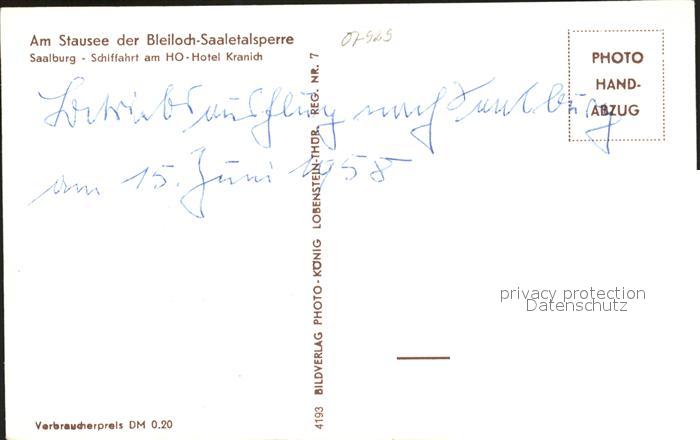 Am Stausee der Bleiloch-Saaletalsperre
Saalburg - Schiffahrt am HO-Hotel Kranich
07929
PHOTO
HAND-
ABZUG
Betriebsausflug nach Saalburg
am 15. Juni 1958
4193 BILDVERLAG PHOTO-KÖNIG LOBENSTEIN-THÜR. REG. NR. 7
privacy protection
Datenschutz
Verbraucherpreis DM 0.20